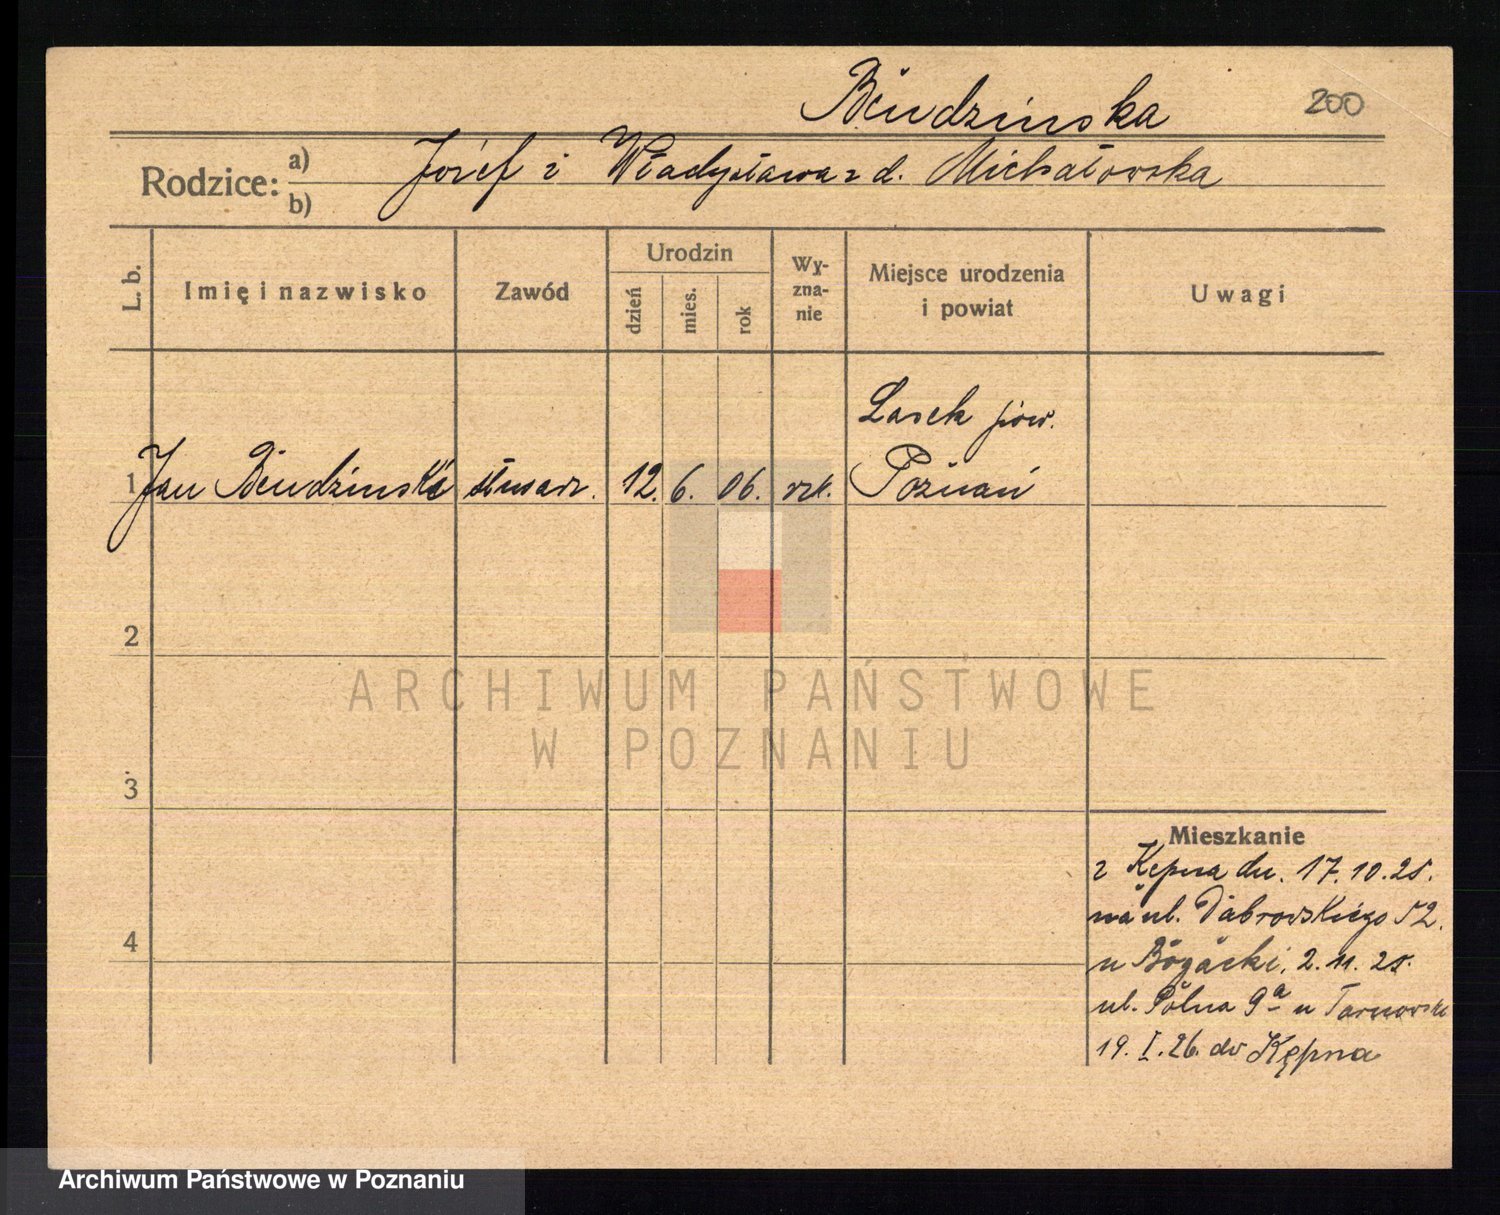 Bendzinska
200
Rodzice: a) b)
Józef i Władysława z d. Michałowska
L. b.
Imię i nazwisko
Zawód
Urodzin
dzień
mies.
rok
Wy-
zna-
nie
Miejsce urodzenia
i powiat
Uwagi
Lasek pow.
1 Jan Bendzinski 12. 6. 06. rzk. Poznań
2
3
4
Mieszkanie
z Kępna dn. 17.10.25.
na ul. Dąbrowskiego 52.
u Bogacki, 2.11.25.
ul. Polna 9a u Tarnowski
19. I. 26. do Kępna
ARCHIWUM PAŃSTWOWE
W POZNANIU
Archiwum Państwowe w Poznaniu